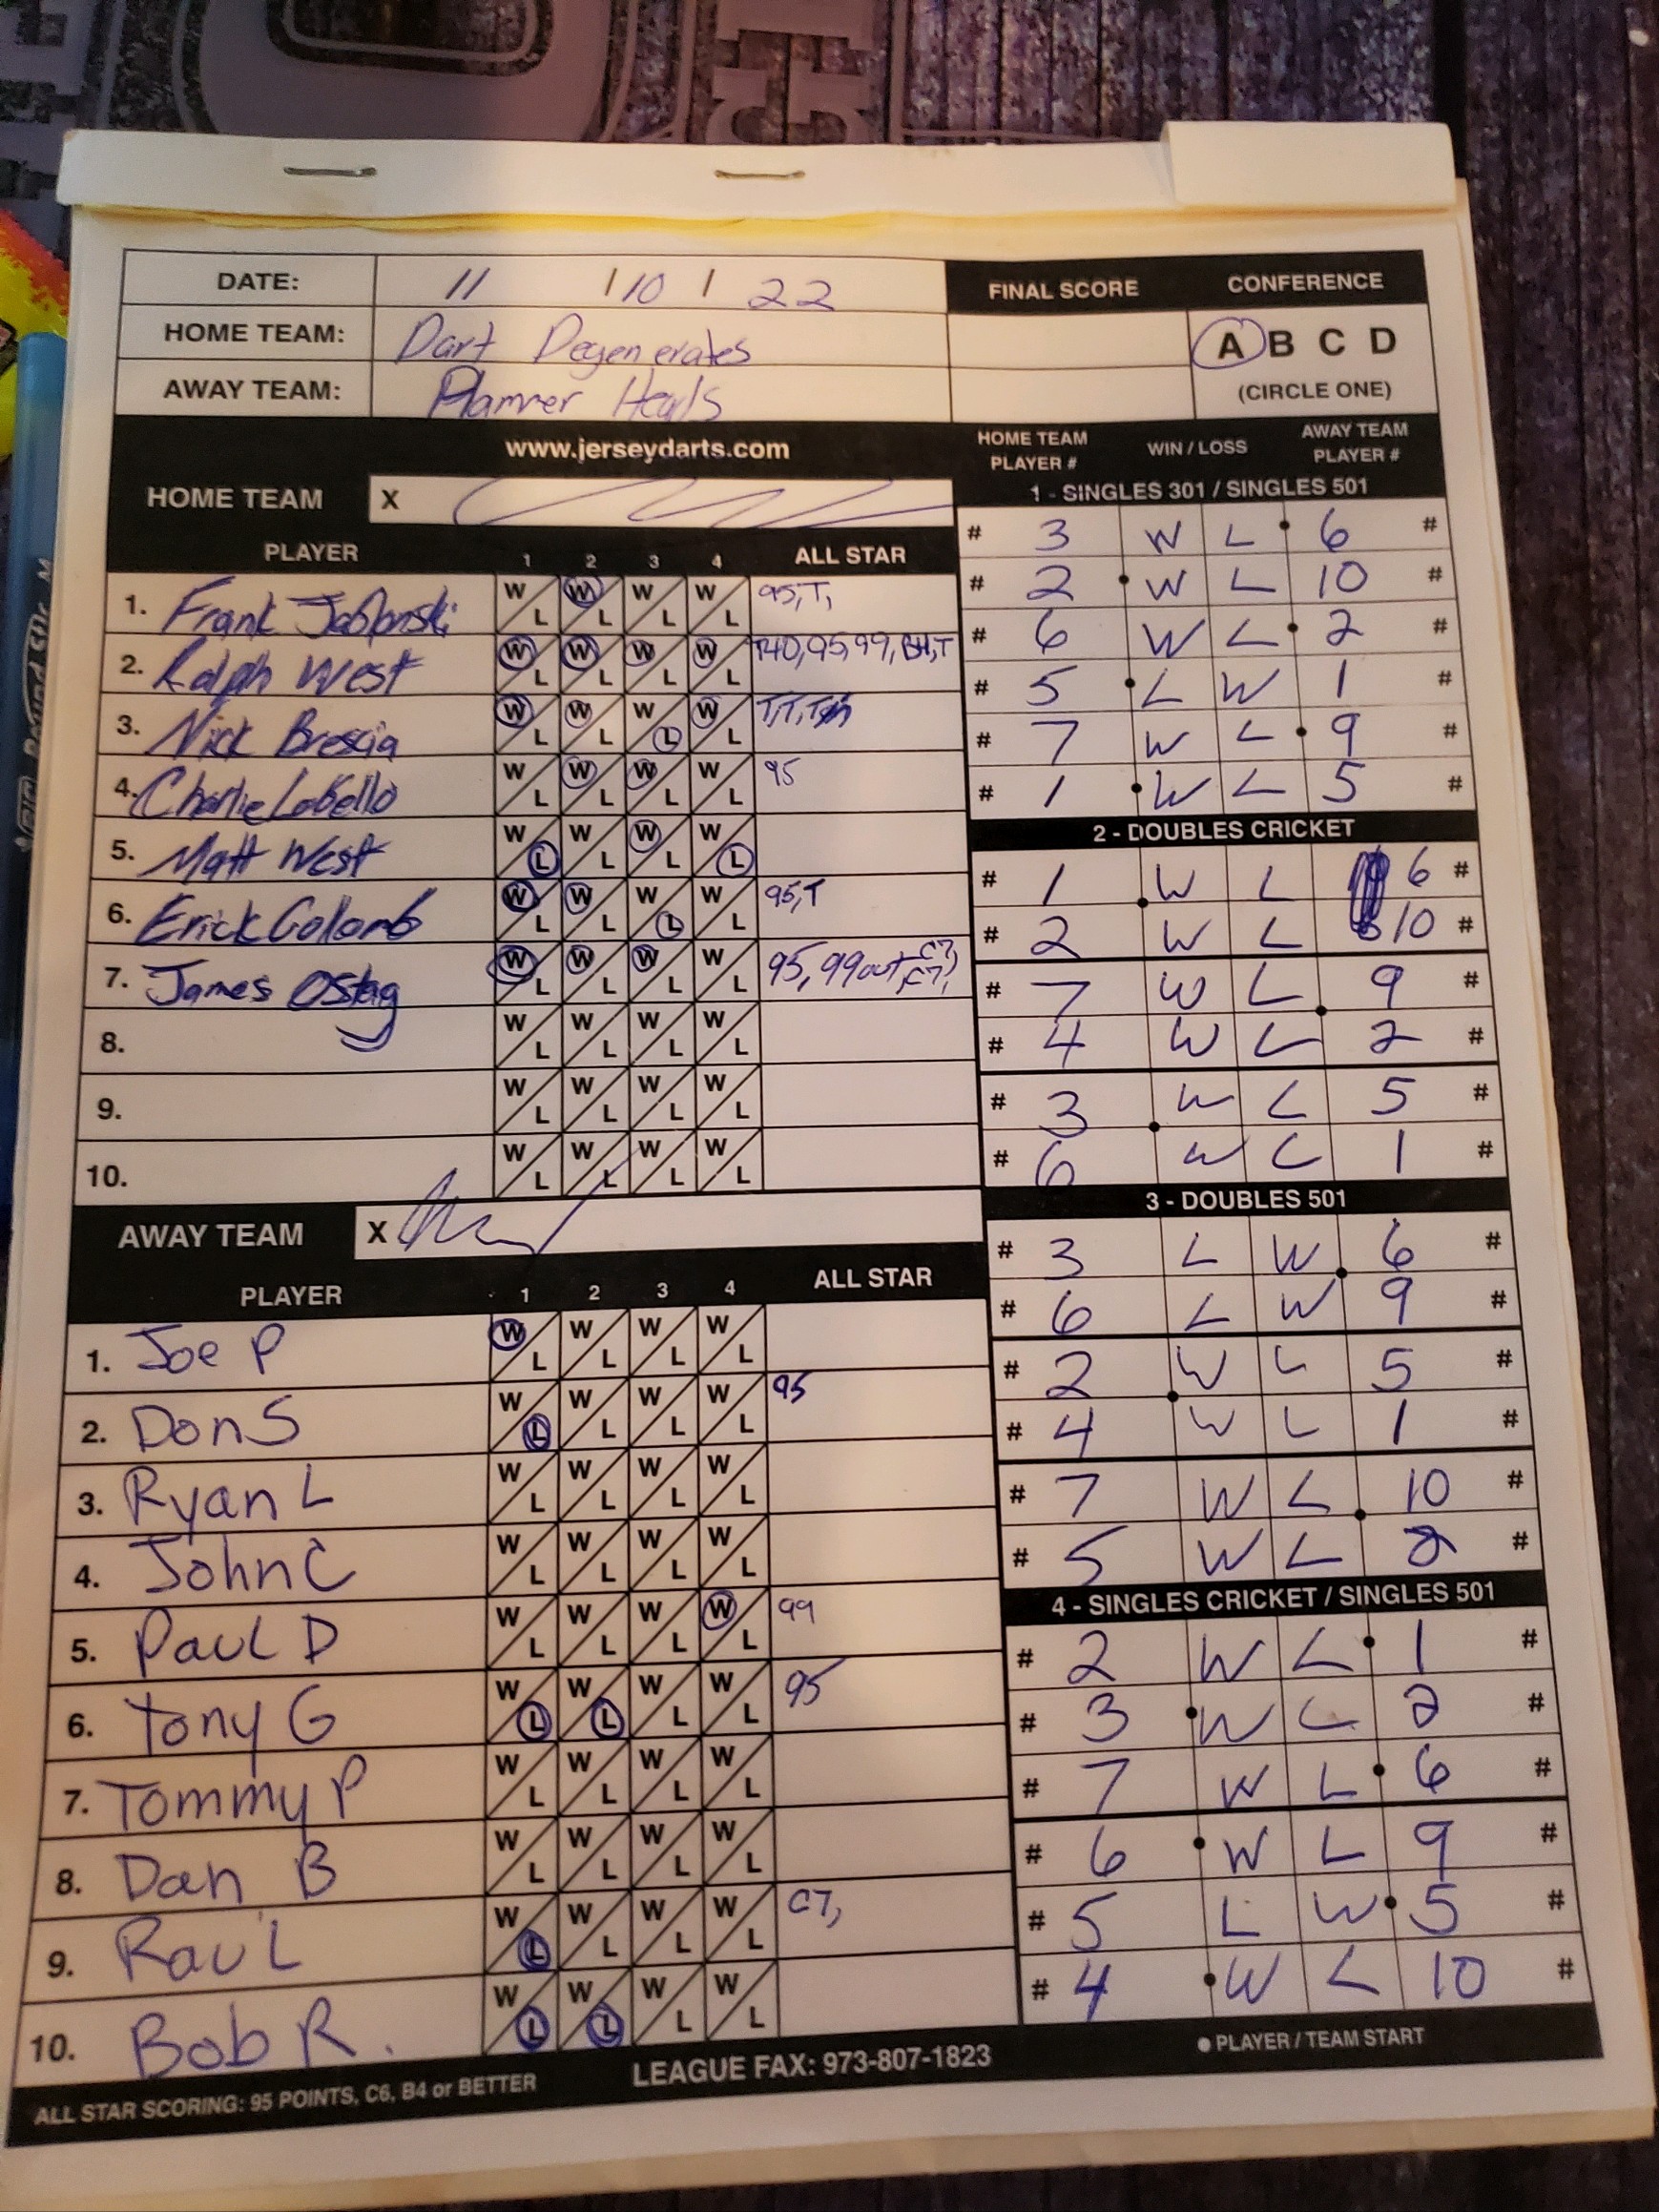 DATE: 11 / 10 / 22
HOME TEAM: Dart Degenerates
AWAY TEAM: Hammer Heads
FINAL SCORE CONFERENCE
A B C D
(CIRCLE ONE)
www.jerseydarts.com
HOME TEAM X
PLAYER 1 2 3 4 ALL STAR
1. Frank Jablonski W L W L W L W L 95, T,
2. Ralph West W L W L W L W L 140, 95, 99, BH, T
3. Nick Brescia W L W L W L W L T, T, T
4. Charlie Lobello W L W L W L W L 95
5. Matt West W L W L W L W L
6. Erick Colomb W L W L W L W L 95, T
7. James Ostag W L W L W L W L 95, 99 out, C7, C7,
8. W L W L W L W L
9. W L W L W L W L
10. W L W L W L W L
AWAY TEAM X
PLAYER 1 2 3 4 ALL STAR
1. Joe P W L W L W L W L
2. Don S W L W L W L W L 95
3. Ryan L W L W L W L W L
4. John C W L W L W L W L
5. Paul D W L W L W L W L 99
6. Tony G W L W L W L W L 95
7. Tommy P W L W L W L W L
8. Dan B W L W L W L W L
9. Rau L W L W L W L W L C7,
10. Bob R. W L W L W L W L
ALL STAR SCORING: 95 POINTS, C6, B4 or BETTER
LEAGUE FAX: 973-807-1823
HOME TEAM PLAYER # WIN / LOSS AWAY TEAM PLAYER #
1 - SINGLES 301 / SINGLES 501
# 3 W L 6 #
# 2 W L 10 #
# 6 W L 2 #
# 5 L W 1 #
# 7 W L 9 #
# 1 W L 5 #
2 - DOUBLES CRICKET
# 1 W L 6 #
# 2 W L 10 #
# 7 W L 9 #
# 4 W L 2 #
# 3 W L 5 #
# 6 W L 1 #
3 - DOUBLES 501
# 3 L W 6 #
# 6 L W 9 #
# 2 W L 5 #
# 4 W L 1 #
# 7 W L 10 #
# 5 W L 2 #
4 - SINGLES CRICKET / SINGLES 501
# 2 W L 1 #
# 3 W L 2 #
# 7 W L 6 #
# 6 W L 9 #
# 5 L W 5 #
# 4 W L 10 #
● PLAYER / TEAM START